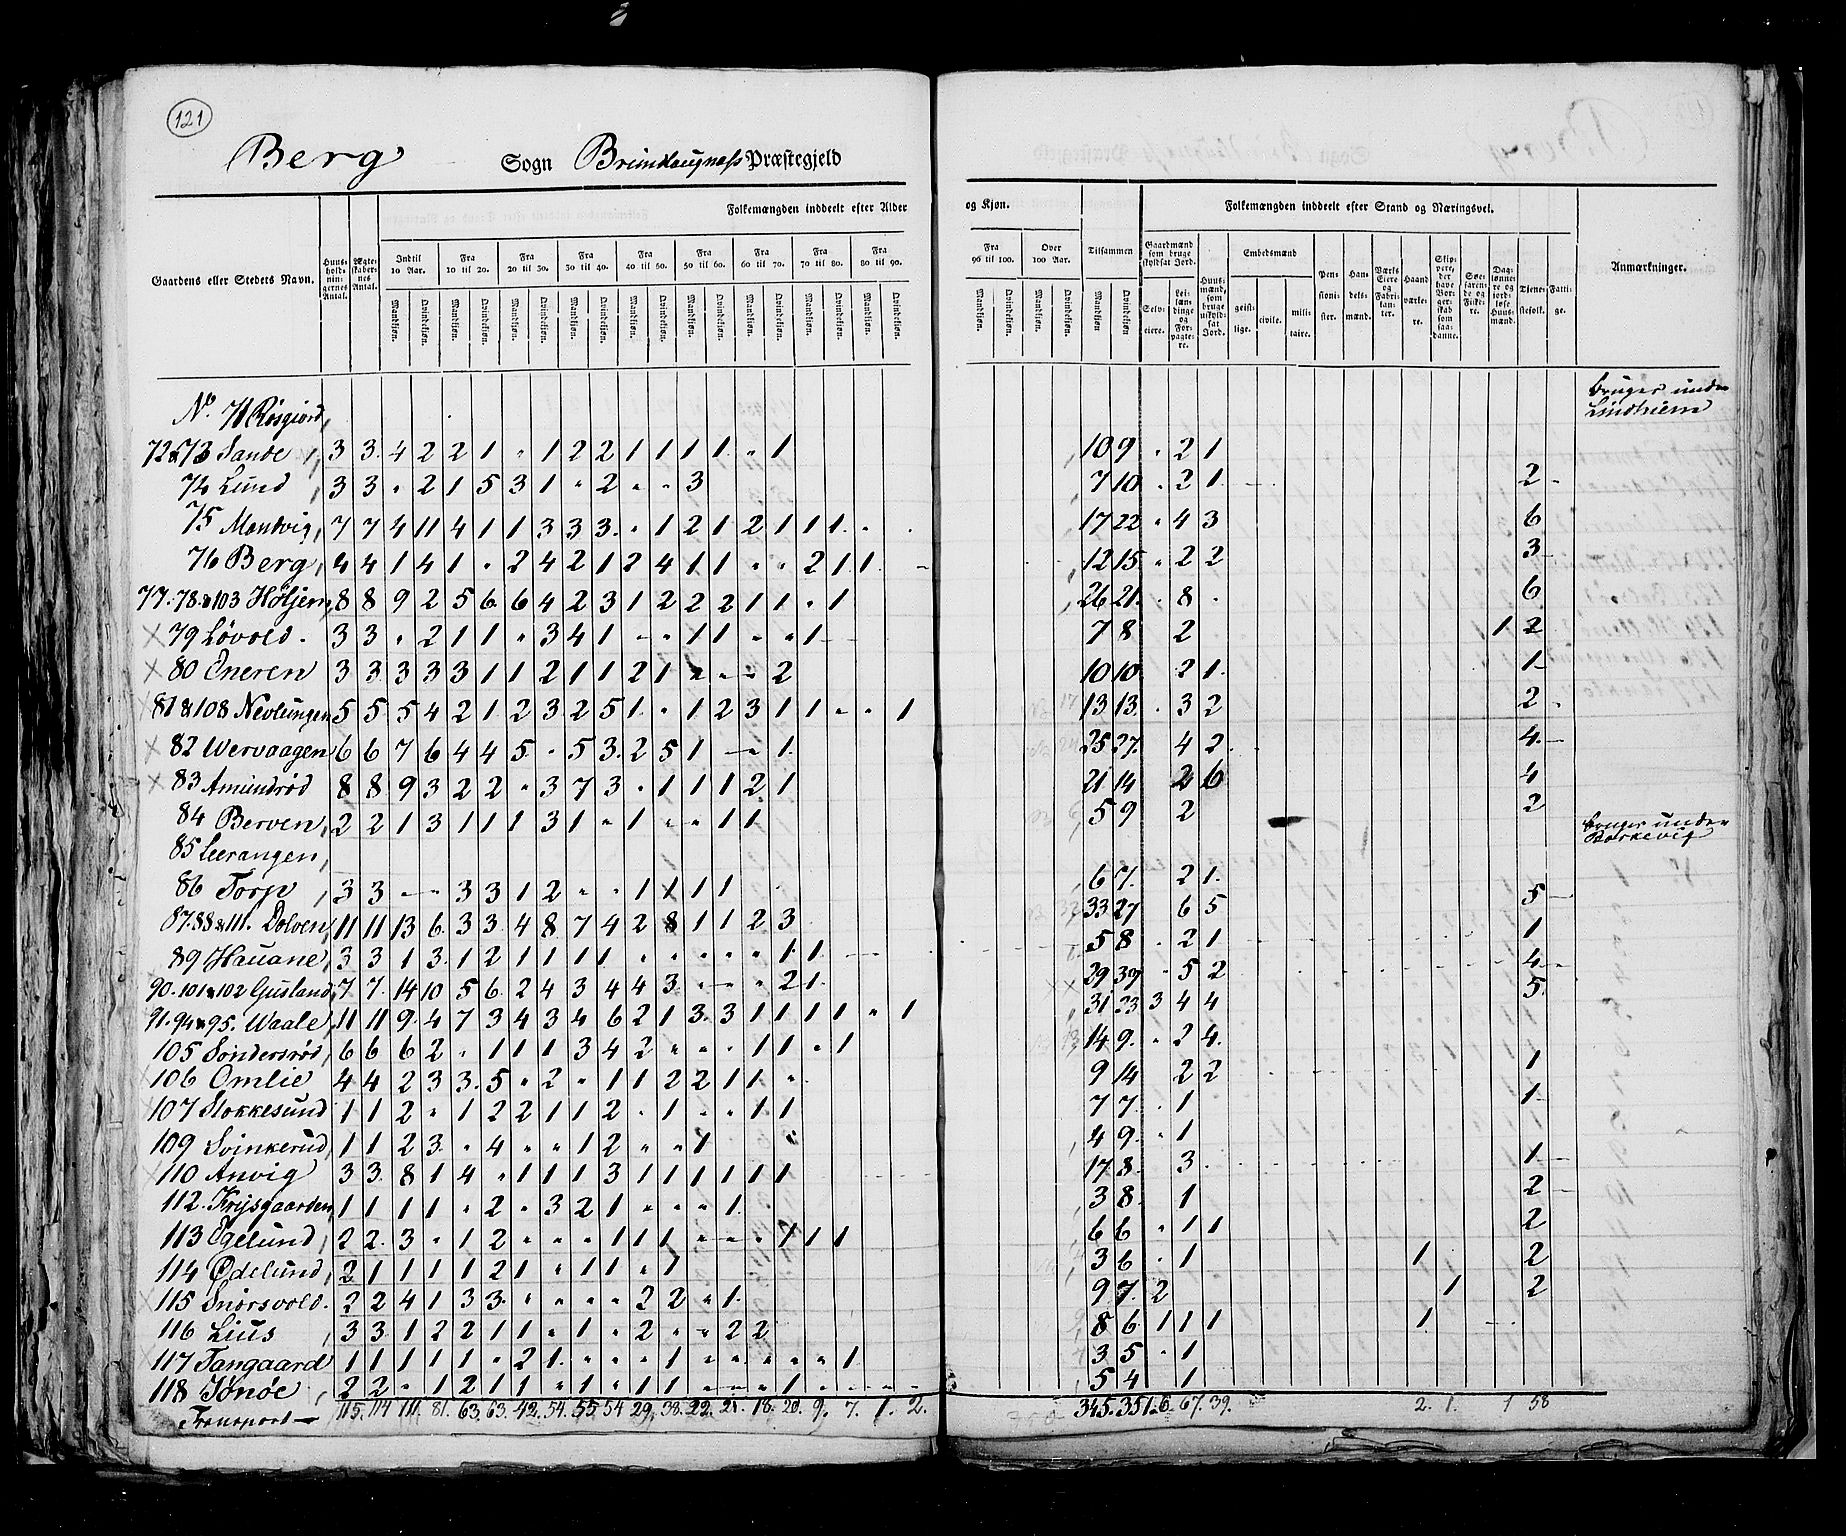 121
Berg Sogn Brunlaugnæss Præstegjeld
Gaardens eller Stedets Navn.
Huus-holdnin-gernes Antal.
Ægte-skaber-nes Antal.
Folkemængden inddeelt efter Alder og Kjøn.
Indtil 10 Aar.
Fra 10 til 20.
Fra 20 til 30.
Fra 30 til 40.
Fra 40 til 50.
Fra 50 til 60.
Fra 60 til 70.
Fra 70 til 80.
Fra 80 til 90.
Fra 90 til 100.
Over 100 Aar.
Mandkjøn. Qvindekjøn.
Tilsammen
Folkemængden inddeelt efter Stand og Næringsvei.
Gaardmænd som bruge skyldsat Jord.
Selveiere.
Leilændinge og Forpagtere.
Huusmænd, som bruge uskyldsat Jord.
Embedsmænd
geistlige. civile. militaire.
Pensionister.
Handelsmænd.
Værks Eiere og Fabrikanter.
Haandværkere.
Skippere, der have Borgerskab som saadanne.
Søefarende og Fiskere.
Daglønnere og jordløse Huusmænd.
Tjenestefolk.
Fattige.
Anmærkninger.
No. 71 Røsgiord, bruges under Lindhiem
72 & 73 Sande, 3 3 4 2 2 1 " 1 2 2 1 1 1 1 " 1 10 9 2 1
74 Lund, 3 3 " 2 1 5 3 1 " 2 " " 3 7 10 2 1 2
75 Mandvig, 7 7 4 11 4 1 1 3 3 3 " 1 2 1 2 1 1 1 17 22 4 3 6
76 Berg, 4 4 1 4 1 " 2 4 2 1 2 4 1 1 " " 2 1 1 12 15 2 2 3
77. 78. & 103 Høljem, 8 8 9 2 5 6 6 4 2 3 1 2 2 2 1 1 " 1 26 21 8 6
79 Løvold. 3 3 " 2 1 1 " 3 4 1 " " 1 1 " " 1 7 8 2 1 2
80 Eneren 3 3 3 3 3 1 1 2 1 1 2 1 " " " 2 10 10 2 1 1
81 & 108 Nevlungen 5 5 5 4 2 1 2 3 2 5 1 " 1 2 3 1 1 " " 1 13 13 3 2 2
82 Wervaagen 6 6 7 6 4 4 5 " 5 3 2 5 1 " " 1 25 27 4 2 4
83 Amundrød 8 8 9 3 2 2 " 3 7 3 " 1 1 1 2 1 21 14 2 6 4
84 Berven, 2 2 1 3 1 1 1 3 1 " 1 " " 1 1 5 9 2 2
85 Leerangen, bruges under Barkevig
86 Torp, 3 3 " " 3 3 1 2 " " 1 1 1 1 6 7 2 1 5
87. 88 & 111. Dolven, 11 11 13 6 3 3 4 8 7 4 2 8 1 1 2 3 33 27 6 5 1
89 Hauane, 3 3 1 3 1 2 1 1 1 1 " " " " " 1 1 5 8 2 1 4
90. 101 & 102 Gusland, 7 7 14 10 5 6 2 4 3 4 4 3 " " " 2 1 29 30 5 2 5
91. 94 & 95. Waale, 11 11 9 4 7 3 4 3 4 6 2 1 3 3 1 1 1 1 " 1 31 23 3 4 4
105 Søndersrød, 6 6 6 2 " 1 1 1 3 4 2 " " " 1 1 " 1 14 9 2 4
106 Omlie 4 4 2 3 3 5 " 2 " 1 1 2 2 1 1 " 9 14 2 2 1
107 Stokkesund 1 1 2 " 1 2 2 1 1 2 " 1 " " 1 1 7 7 1 1
109 Svinkerud, 1 1 2 3 " 4 " " 1 2 " " 1 4 9 1
110 Anvig 3 3 8 1 4 " 1 1 1 3 1 1 1 1 1 1 17 8 3 1
112. Frisgaarden, 1 1 1 1 " 2 " 3 2 1 " " " 1 3 8 1 2
113 Egelund, 2 2 3 " 1 2 " " " 1 1 1 " " " 1 1 1 6 6 1 1 2
114 Ødelund, 2 1 1 1 1 2 1 " 1 1 " 1 3 6 1 1 2
115 Snorsvold. 2 2 4 1 3 3 " " " " 2 2 " 1 9 7 2 1 2
116 Lius, 3 3 1 2 2 1 1 " 1 " 2 " " 2 2 8 6 1 1 1 1
117 Tangaard 1 1 1 1 1 " 2 1 " " " 1 " " " " " 1 3 5 1
118 Jønøe, 2 2 " 1 2 1 1 " 1 " 1 1 " " " 1 5 4 1
Transport 115. 114 111. 81. 63. 63. 42. 54. 55. 54 29. 38. 22. 21. 18. 20. 9. 7. 1. 2. 345. 351. 6. 67. 39. 2. 1. 1 58